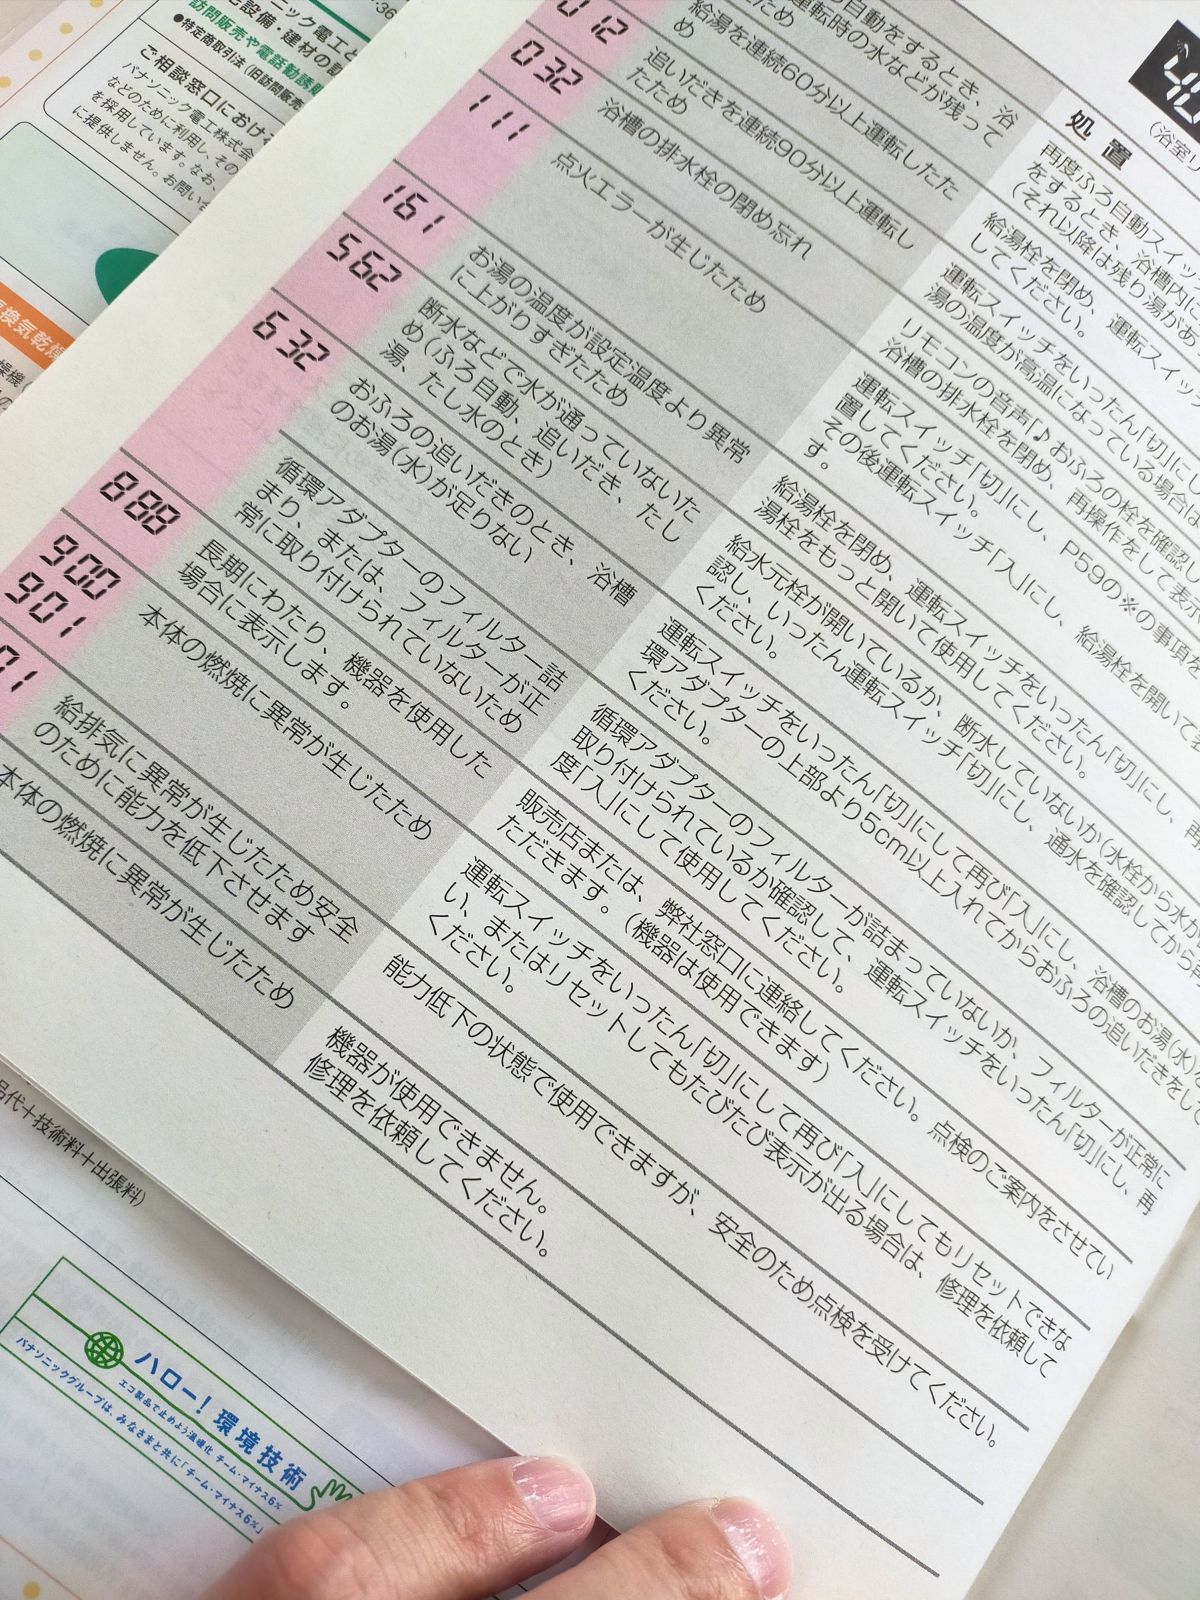 ニック電工と
宅設備・建材の
訪問販売や電話勧誘
●特定商取引法(旧訪問販売
ご相談窓口における
パナソニック電工株式会
などのために利用し、その
を採用しています。なお、
に提供しません。お問い合
換気乾燥
処置
(浴室リ
自動をするとき、浴
運転時の水などが残って
ため
再度ふろ自動スイッ
をするとき、浴槽内に
(それ以降は残り湯があ
012
給湯を連続60分以上運転したた
め
給湯栓を閉め、運転スイッ
してください。
032
追いだきを連続90分以上運転し
たため
運転スイッチをいったん「切」にし
湯の温度が高温になっている場合は
浴槽の排水栓の閉め忘れ
リモコンの音声「♪おふろの栓を確認し
浴槽の排水栓を閉め、再操作をして
111
点火エラーが生じたため
運転スイッチ「切」にし、P59の※の事項を
置してください。
その後運転スイッチ「入」にし、給湯栓を開いて
す。
161
お湯の温度が設定温度より異常
に上がりすぎたため
給湯栓を閉め、運転スイッチをいったん「切」にし、再
湯栓をもっと開いて使用してください。
562
断水などで水が通っていないた
め(ふろ自動、追いだき、たし
湯、たし水のとき)
給水元栓が開いているか、断水していないか(水栓から水が
認し、いったん運転スイッチ「切」にし、通水を確認してから
ください。
632
おふろの追いだきのとき、浴槽
のお湯(水)が足りない
運転スイッチをいったん「切」にして再び「入」にし、浴槽のお湯(水)を
環アダプターの上部より5cm以上入れてからおふろの追いだきをして
ください。
循環アダプターのフィルター詰
まり、または、フィルターが正
常に取り付けられていないため
循環アダプターのフィルターが詰まっていないか、フィルターが正常に
取り付けられているか確認して、運転スイッチをいったん「切」にし、再
度「入」にして使用してください。
888
長期にわたり、機器を使用した
場合に表示します。
販売店または、弊社窓口に連絡してください。点検のご案内をさせてい
ただきます。(機器は使用できます)
900
901
本体の燃焼に異常が生じたため
運転スイッチをいったん「切」にして再び「入」にしてもリセットできな
い、またはリセットしてもたびたび表示が出る場合は、修理を依頼して
ください。
01
給排気に異常が生じたため安全
のために能力を低下させます
能力低下の状態で使用できますが、安全のため点検を受けてください。
本体の燃焼に異常が生じたため
機器が使用できません。
修理を依頼してください。
品代+技術料+出張料)
ハロー!環境技術
エコ製品で止めよう温暖化 チーム・マイナス6%
パナソニックグループは、みなさまと共に「チーム・マイナス6%」